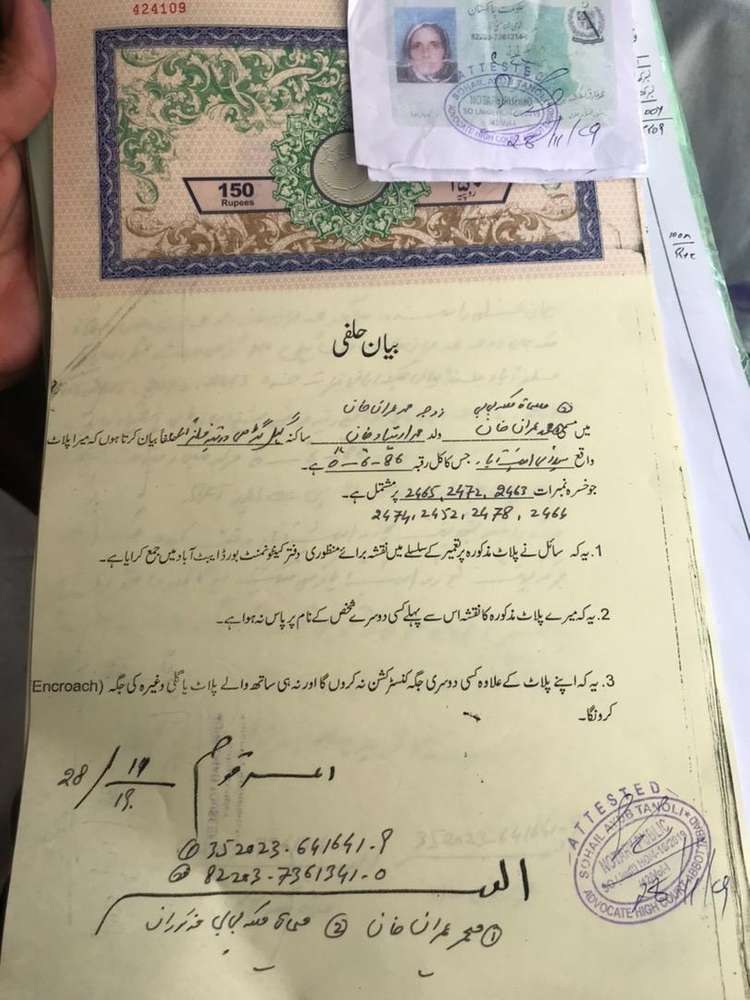 424109
150
Rupees
ATTESTED
SOHAIL AYUB TANOLI
ADVOCATE HIGH COURT
28/11/19
بیان حلفی
② مسماۃ زوجہ محمد عمران خان
میں محمد عمران خان ولد ساکنہ حلفاً بیان کرتا ہوں کہ میرا پلاٹ
واقع جس کا کل رقبہ 86-6-0 ہے۔
جو خسرہ نمبرات 2463, 2472, 2465 پر مشتمل ہے۔
2466, 2478, 2452, 2474
1. یہ کہ سائل نے پلاٹ مذکورہ پر تعمیر کے سلسلے میں نقشہ برائے منظوری دفتر کینٹونمنٹ بورڈ ایبٹ آباد میں جمع کرایا ہے۔
2. یہ کہ میرے پلاٹ مذکورہ کا نقشہ اس سے پہلے کسی دوسرے شخص کے نام پر پاس نہ ہوا ہے۔
3. یہ کہ اپنے پلاٹ کے علاوہ کسی دوسری جگہ کنسٹرکشن نہ کروں گا اور نہ ہی ساتھ والے پلاٹ یا گلی وغیرہ کی جگہ (Encroach
کرونگا۔
المرقوم 28/11/19
① 352023-641641-9
② 82203-7361341-0
العبد
① محمد عمران خان ② مسماۃ
ATTESTED
SOHAIL AYUB TANOLI
NOTARY PUBLIC
ADVOCATE HIGH COURT ABBOTTABAD
28/11/19